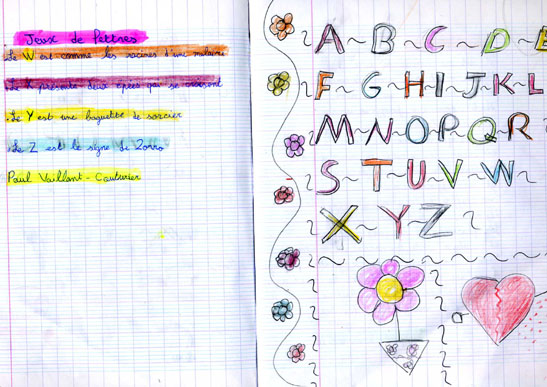 Jeux de lettres
Le W est comme les racines d'une molaire
Le X présente deux épées qui se croisent
Le Y est une baguette de sorcier
Le Z est le signe de Zorro
Paul Vaillant-Couturier
A B C D E
F G H I J K L
M N O P Q R
S T U V W
X Y Z